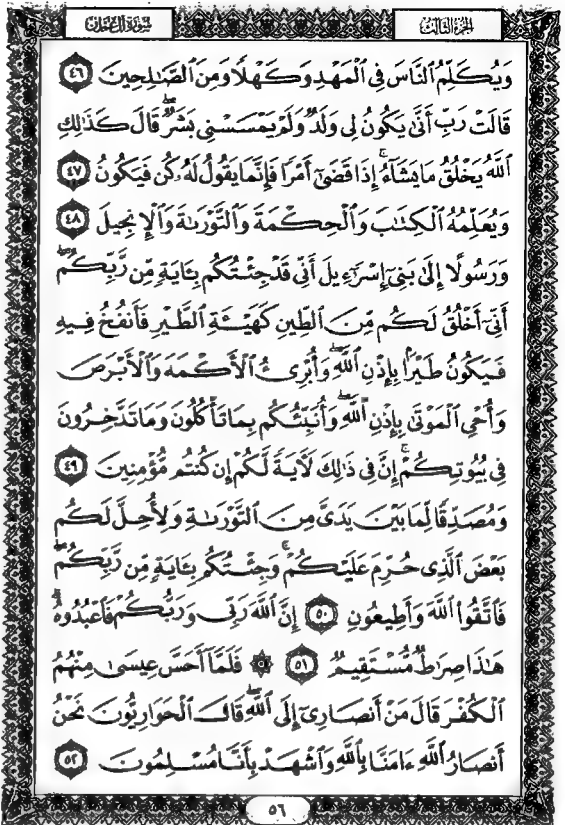 الجزء الثالث
سورة آل عمران
وَيُكَلِّمُ ٱلنَّاسَ فِى ٱلْمَهْدِ وَكَهْلًا وَمِنَ ٱلصَّٰلِحِينَ ٤٦
قَالَتْ رَبِّ أَنَّىٰ يَكُونُ لِى وَلَدٌ وَلَمْ يَمْسَسْنِى بَشَرٌ ۖ قَالَ كَذَٰلِكِ
ٱللَّهُ يَخْلُقُ مَا يَشَآءُ ۚ إِذَا قَضَىٰٓ أَمْرًا فَإِنَّمَا يَقُولُ لَهُۥ كُن فَيَكُونُ ٤٧
وَيُعَلِّمُهُ ٱلْكِتَٰبَ وَٱلْحِكْمَةَ وَٱلتَّوْرَىٰةَ وَٱلْإِنجِيلَ ٤٨
وَرَسُولًا إِلَىٰ بَنِىٓ إِسْرَٰٓءِيلَ أَنِّى قَدْ جِئْتُكُم بِـَٔايَةٍ مِّن رَّبِّكُمْ ۖ
أَنِّىٓ أَخْلُقُ لَكُم مِّنَ ٱلطِّينِ كَهَيْـَٔةِ ٱلطَّيْرِ فَأَنفُخُ فِيهِ
فَيَكُونُ طَيْرًۢا بِإِذْنِ ٱللَّهِ ۖ وَأُبْرِئُ ٱلْأَكْمَهَ وَٱلْأَبْرَصَ
وَأُحْىِ ٱلْمَوْتَىٰ بِإِذْنِ ٱللَّهِ ۖ وَأُنَبِّئُكُم بِمَا تَأْكُلُونَ وَمَا تَدَّخِرُونَ
فِى بُيُوتِكُمْ ۚ إِنَّ فِى ذَٰلِكَ لَءَايَةً لَّكُمْ إِن كُنتُم مُّؤْمِنِينَ ٤٩
وَمُصَدِّقًا لِّمَا بَيْنَ يَدَىَّ مِنَ ٱلتَّوْرَىٰةِ وَلِأُحِلَّ لَكُم
بَعْضَ ٱلَّذِى حُرِّمَ عَلَيْكُمْ ۚ وَجِئْتُكُم بِـَٔايَةٍ مِّن رَّبِّكُمْ
فَٱتَّقُوا۟ ٱللَّهَ وَأَطِيعُونِ ٥٠ إِنَّ ٱللَّهَ رَبِّى وَرَبُّكُمْ فَٱعْبُدُوهُ ۗ
هَٰذَا صِرَٰطٌ مُّسْتَقِيمٌ ٥١ ۞ فَلَمَّآ أَحَسَّ عِيسَىٰ مِنْهُمُ
ٱلْكُفْرَ قَالَ مَنْ أَنصَارِىٓ إِلَى ٱللَّهِ ۖ قَالَ ٱلْحَوَارِيُّونَ نَحْنُ
أَنصَارُ ٱللَّهِ ءَامَنَّا بِٱللَّهِ وَٱشْهَدْ بِأَنَّا مُسْلِمُونَ ٥٢
٥٦